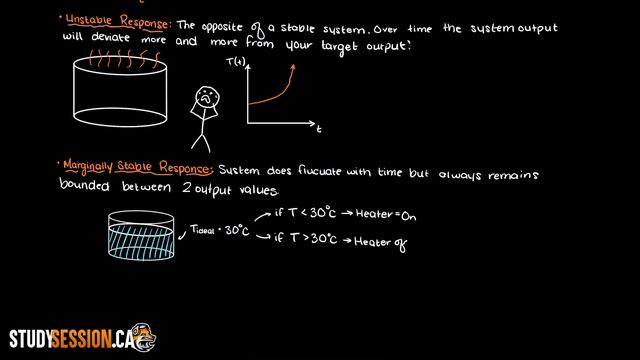 • Unstable Response: The opposite of a stable system. Over time the system output
will deviate more and more from your target output!
T(t)
t
• Marginally Stable Response: System does flucuate with time but always remains
bounded between 2 output values.
Tideal = 30°C
if T < 30°C → Heater = On
if T > 30°C → Heater of
STUDYSESSION.CA